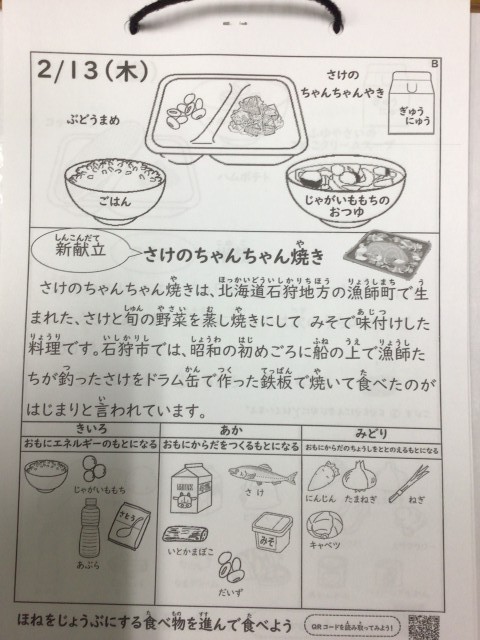 B
2/13(木)
さけの
ちゃんちゃんやき
ぎゅう
にゅう
ぶどうまめ
ごはん
じゃがいももちの
おつゆ
しんこんだて
新献立
さけのちゃんちゃん焼き
さけのちゃんちゃん焼きは、北海道石狩地方の漁師町で生
まれた、さけと旬の野菜を蒸し焼きにして みそで味付けした
料理です。石狩市では、昭和の初めごろに船の上で漁師た
ちが釣ったさけをドラム缶で作った鉄板で焼いて食べたのが
はじまりと言われています。
きいろ
おもにエネルギーのもとになる
じゃがいももち
さとう
あぶら
あか
おもにからだをつくるもとになる
さけ
いとかまぼこ
みそ
だいず
みどり
おもにからだのちょうしをととのえるもとになる
にんじん
たまねぎ
ねぎ
キャベツ
ほねをじょうぶにする食べ物を進んで食べよう
QRコードを読み取ってみよう!